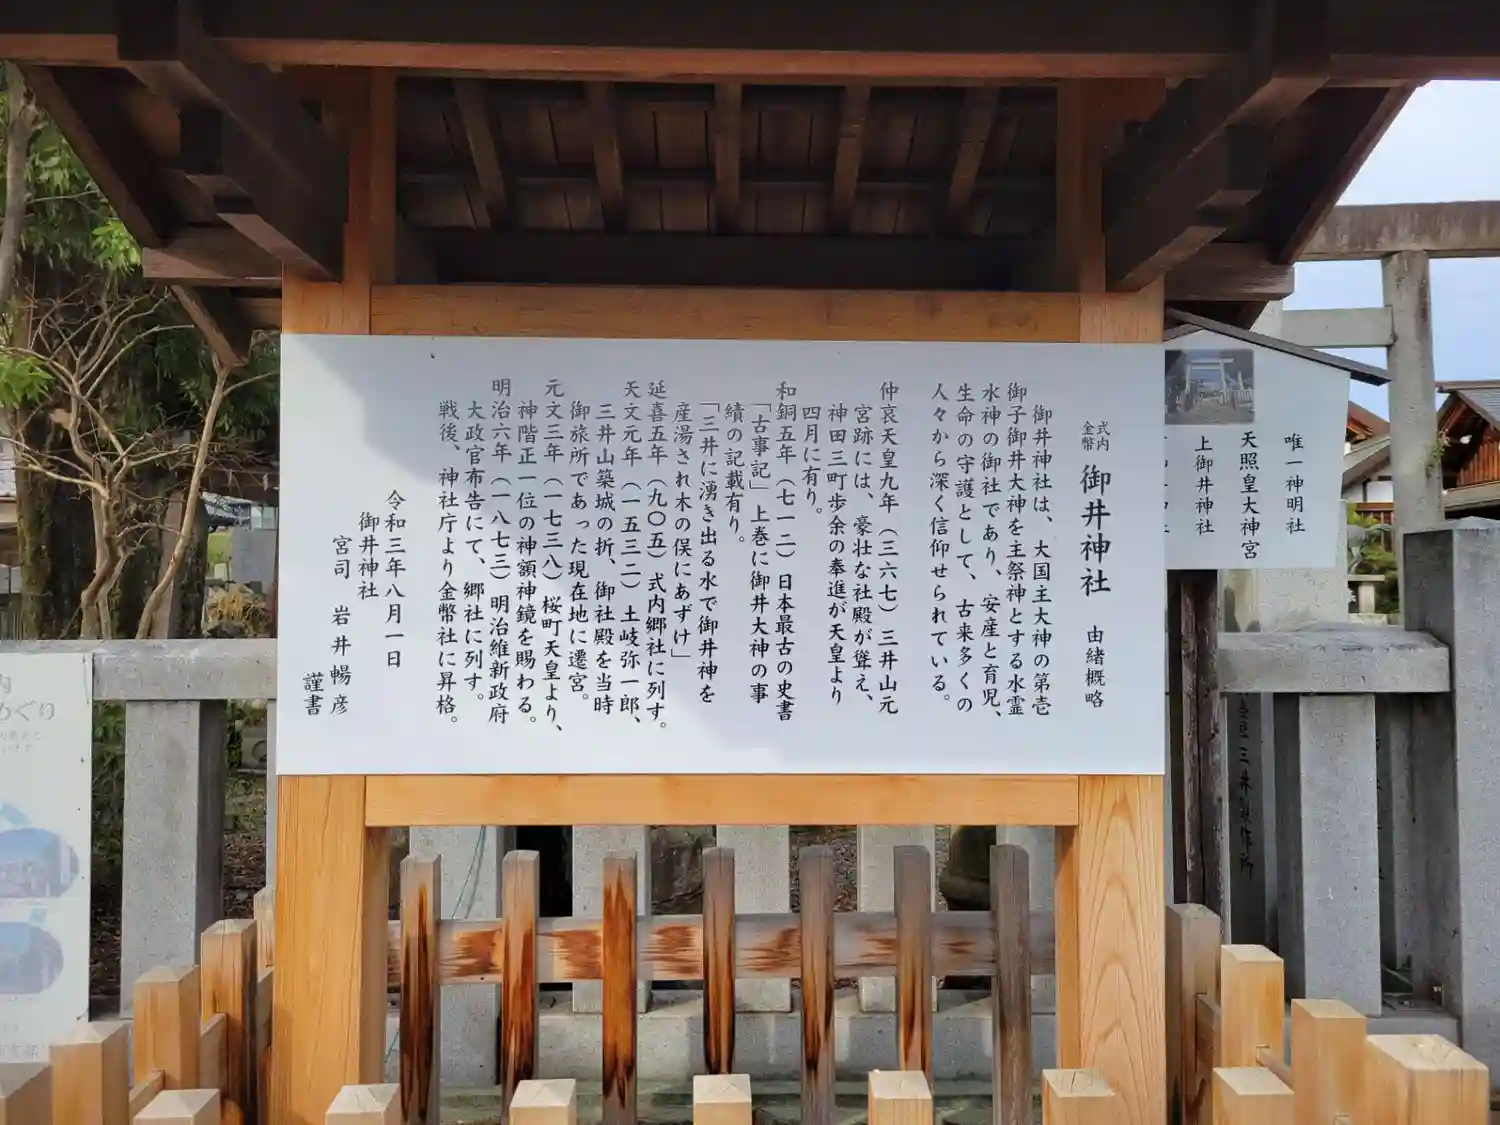 式内
金幣
御井神社　由緒概略
御井神社は、大国主大神の第壱
御子御井大神を主祭神とする水霊
水神の御社であり、安産と育児、
生命の守護として、古来多くの
人々から深く信仰せられている。
仲哀天皇九年（三六七）三井山元
宮跡には、豪壮な社殿が聳え、
神田三町歩余の奉進が天皇より
四月に有り。
和銅五年（七一二）日本最古の史書
「古事記」上巻に御井大神の事
績の記載有り。
「三井に湧き出る水で御井神を
産湯され木の俣にあずけ」
延喜五年（九〇五）式内郷社に列す。
天文元年（一五三二）土岐弥一郎、
三井山築城の折、御社殿を当時
御旅所であった現在地に遷宮。
元文三年（一七三八）桜町天皇より、
神階正一位の神額神鏡を賜わる。
明治六年（一八七三）明治維新政府
大政官布告にて、郷社に列す。
戦後、神社庁より金幣社に昇格。
令和三年八月一日
御井神社
宮司　岩井暢彦
謹書
唯一神明社
天照皇大神宮
上御井神社
めぐり